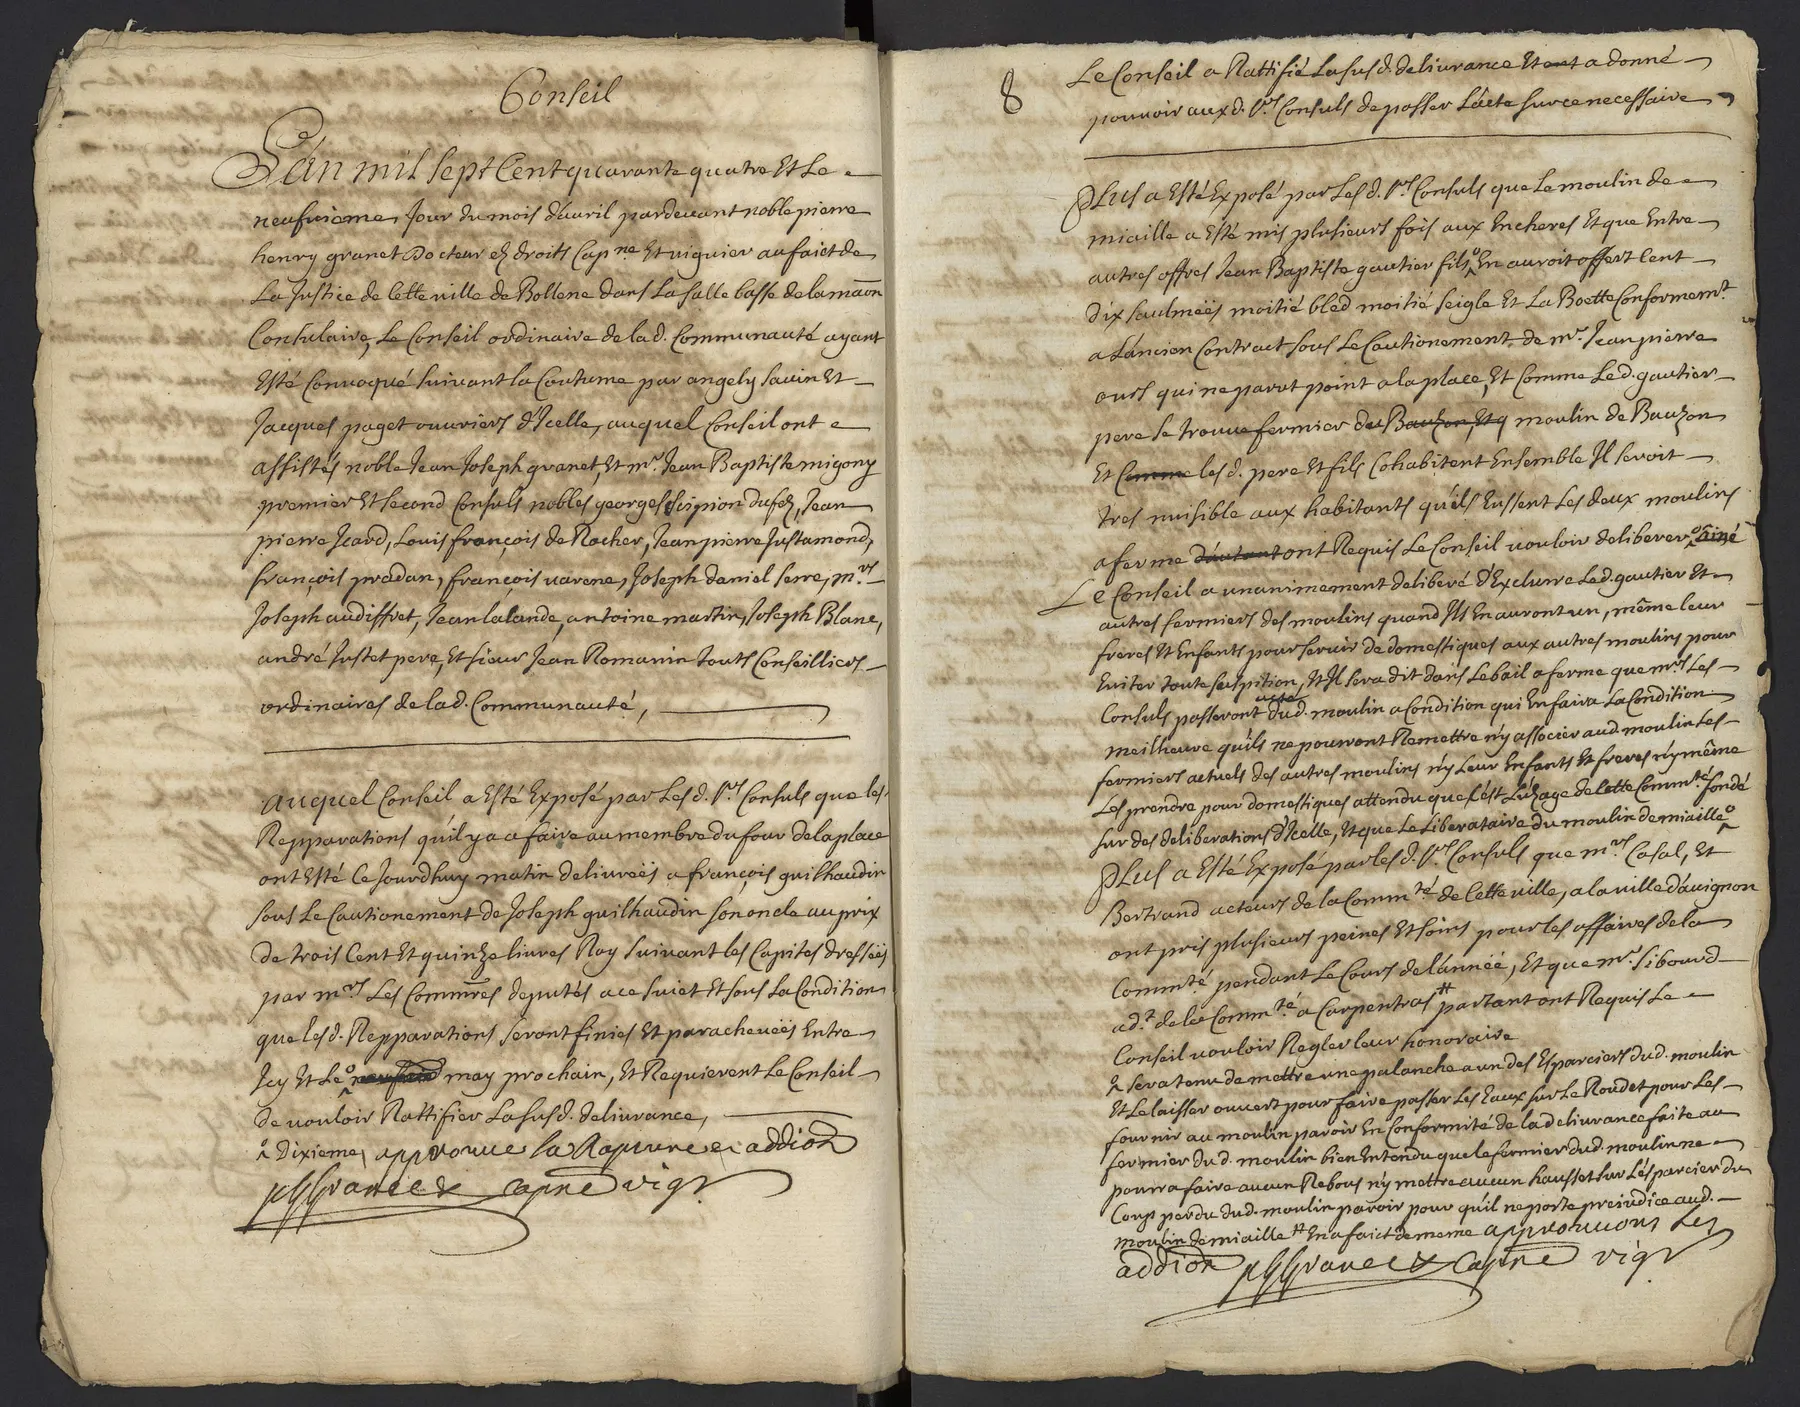 Conseil
L'an mil sept Cent quarante quatre Et Le
neufvieme Jour du mois d'avril pardevant noble pierre
henry granet Docteur ez droits Capne Et viguier au faict de
La Justice de Cette ville de Bollene dans La salle basse de la maon
Consulaire, Le Conseil ordinaire de la d. Communauté ayant
Esté Convoqué suivant la Coutume par angely sauin Et
Jacques paget ouvriers d'Icelle, auquel Conseil ont
assistés noble Jean Joseph granet, Et mr. Jean Baptiste migony
premier Et second Consuls nobles georges scipion dufez, Jean
pierre Icard, Louis françois de Rocher, Jean pierre Justamond,
françois pradan, françois varene, Joseph daniel serre, mrs
Joseph audiffret, Jean lalande, antoine martin, Joseph Blanc,
andré Justet pere, Et sieur Jean Romanin touts Conseilliers
ordinaires de la d. Communauté,
auquel Conseil a Esté Exposé par Les d. srs Consuls que les
Repparations qu'il y a a faire au membre du four de la place
ont Esté Ce Jourdhuy matin delivreës a françois guilhaudin
sous Le Cautionement de Joseph guilhaudin son oncle au prix
de trois Cent Et quinze livres Roy suivant les Capites dresseës
par mrs Les Commres deputés a ce sujet Et sous La Condition
que les d. Repparations seront finies Et paracheveës Entre
Icy Et Le may prochain, Et Requierent Le Conseil
de vouloir Rattifier La susd. delivrance,
Dixieme, approuve la Rapure et addion
pHGranet Capne vigr
8
Le Conseil a Rattifié La susd. delivrance Et ont a donné
pouvoir aux d. srs Consuls de passer L'acte sur ce necessaire
PLus a Esté Exposé par Les d. srs Consuls que Le moulin de
miaille a Esté mis plusieurs fois aux Encheres Et que Entre
autres offres Jean Baptiste gautier fils En auroit offert Cent
dix saulmeës moitié bled moitié seigle Et La Boette Conformemt.
a L'ancien Contract sous Le Cautionement de mr. Jean pierre
ours qui ne parut point a la place, Et Comme Le d. gautier
pere se trouve fermier du Bauzon, Et q moulin de Bauzon
Et Comme les d. pere Et fils Cohabitent Ensemble Il seroit
tres nuisible aux habitants qu'ils Eussent Les deux moulins
a ferme d'autant ont Requis Le Conseil vouloir deliberer
Le Conseil a unanimement deliberé d'Exclurre Le d. gautier Et
autres fermiers des moulins quand Ils En auront un, même leur
freres Et Enfants pour servir de domestiques aux autres moulins pour
Eviter toute suspition, Et Il sera dit dans Le bail a ferme que mrs Les
Consuls passeront acte dud. moulin a Condition qui En faira La Condition
meilheure qu'ils ne pourront Remettre n'y associer aud. moulin Les
fermiers actuels des autres moulins n'y Leur Enfants Et freres n'y même
Les prendre pour domestiques attendu que C'est L'uzage de Cette Commté. fondé
sur des deliberations d'Icelle, Et que Le Liberataire du moulin de miaille
PLus a Esté Exposé par les d. srs Consuls que mrs Casal, Et
Bertrand acteurs de la Commté de Cette ville, a la ville d'avignon
ont pris plusieurs peines Et soins pour les affaires de la
Commté pendant Le Cours de l'anneë, Et que mr. sibourd
adt. de la Commté a Carpentras # partant ont Requis Le
Conseil vouloir Regler leur honoraire
sera tenu de mettre une palanche a un des Esparciers dud. moulin
Et Le laisser ouvert pour faire passer Les Eaux sur Le Roudet pour Les
fournir au moulin paroir En Conformité de la delivrance faite au
fermier dud. moulin bien Entendu que le fermier dud. moulin ne
pourra faire aucun Rebous n'y mettre aucun hausset sur L'esparcier du
Coup perdu dud. moulin paroir pour qu'il ne porte prejudice aud.
moulin de miaille # En a faict de meme approuvons Les
addion pHGranet Capne vigr